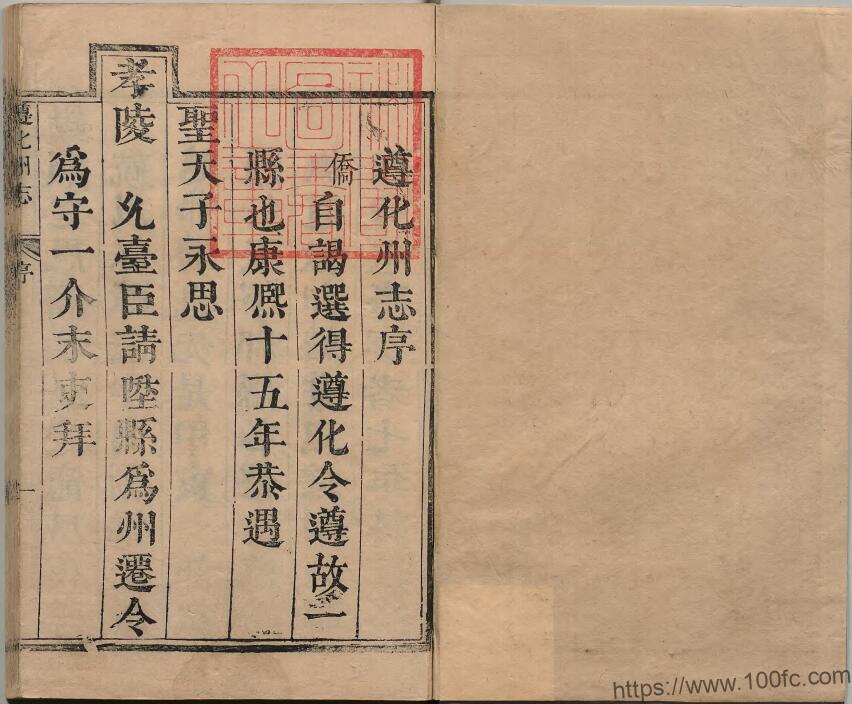 遵化州志序
僑自謁選得遵化令遵故一
縣也康熈十五年恭遇
聖天子永思
孝陵允臺臣請陞縣爲州遷令
爲守一介末吏拜
遵化州志 序 一
https://www.100fc.com